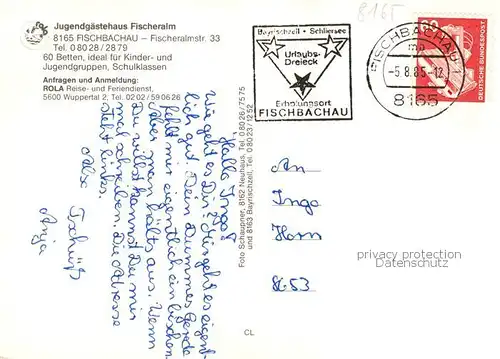 Jugendgästehaus Fischeralm
8165 FISCHBACHAU – Fischeralmstr. 33
Tel. 0 80 28 / 28 79
60 Betten, ideal für Kinder- und
Jugendgruppen, Schulklassen
Anfragen und Anmeldung:
ROLA Reise- und Feriendienst,
5600 Wuppertal 2, Tel. 02 02 / 59 06 26
8165
Bayrischzell · Schliersee
Urlaubs-
Dreieck
Erholungsort
FISCHBACHAU
FISCHBACHAU
-5.8.85-12
8165
DEUTSCHE BUNDESPOST
80
Hallo Ingo!
Wie geht es Dir? Mir geht es eigent-
lich gut. Dein Dummes Gerede
fehlt mir eigentlich ein bischen
Aber man hälts aus. Wenn
Du willst kannst Du mir
mal schreiben. Die Adresse
steht links.
Also Tschüß
Anja
Foto Schaupner, 8162 Neuhaus, Tel. 0 80 26 / 75 75
und 8163 Bayrischzell, Tel. 0 80 23 / 12 52
An
Ingo
Horn
8653
CL
privacy protection
Datenschutz